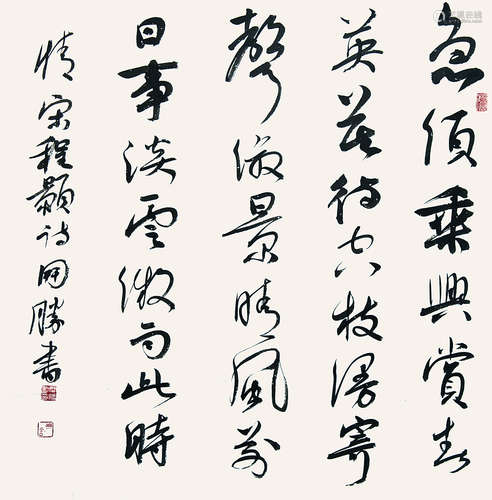 急須乘興賞春
英莫待空枝謾寄
聲淑景晴風前
日事淡雲微雨此時
情 宋程顥詩 勝書